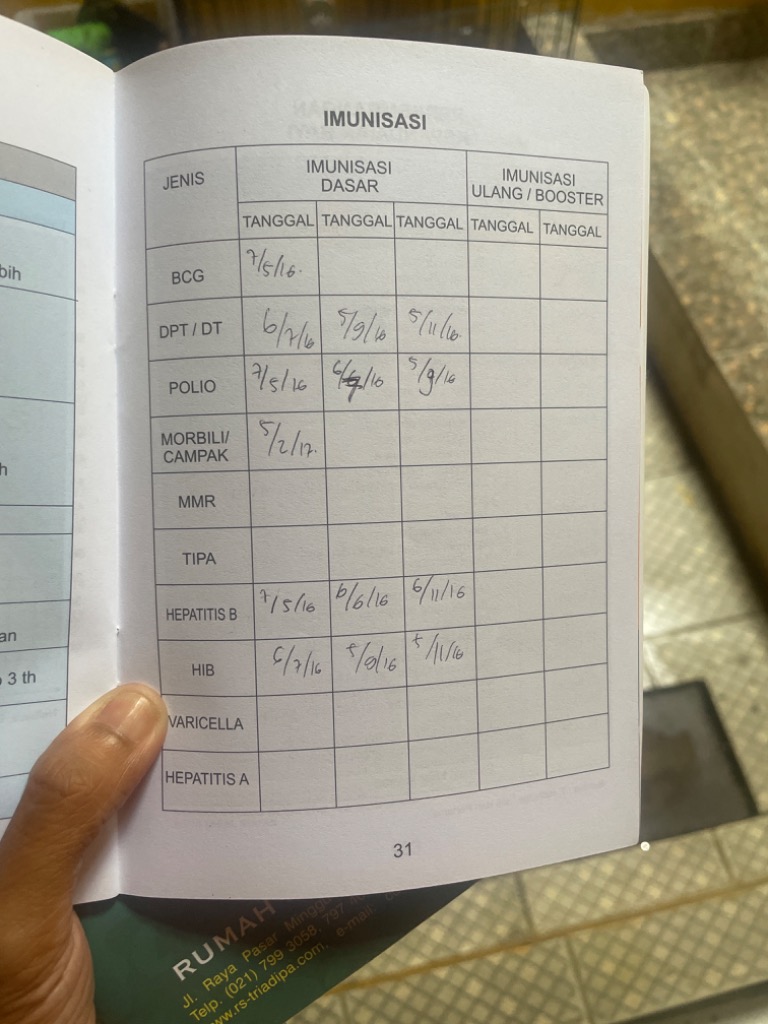 bih
h
an
3 th
IMUNISASI
JENIS
IMUNISASI DASAR
IMUNISASI ULANG / BOOSTER
TANGGAL TANGGAL TANGGAL TANGGAL TANGGAL
BCG 7/5/16.
DPT / DT 6/7/16 5/9/16 5/11/16.
POLIO 7/5/16 5/9/16
MORBILI/ CAMPAK 5/2/17.
MMR
TIPA
HEPATITIS B 7/5/16 6/6/16 6/11/16
HIB 6/7/16 5/9/16 5/11/16
VARICELLA
HEPATITIS A
31
RUMAH
Jl. Raya Pasar Minggu
Telp. (021) 799 3058, 797
www.rs-triadipa.com, e-mail: